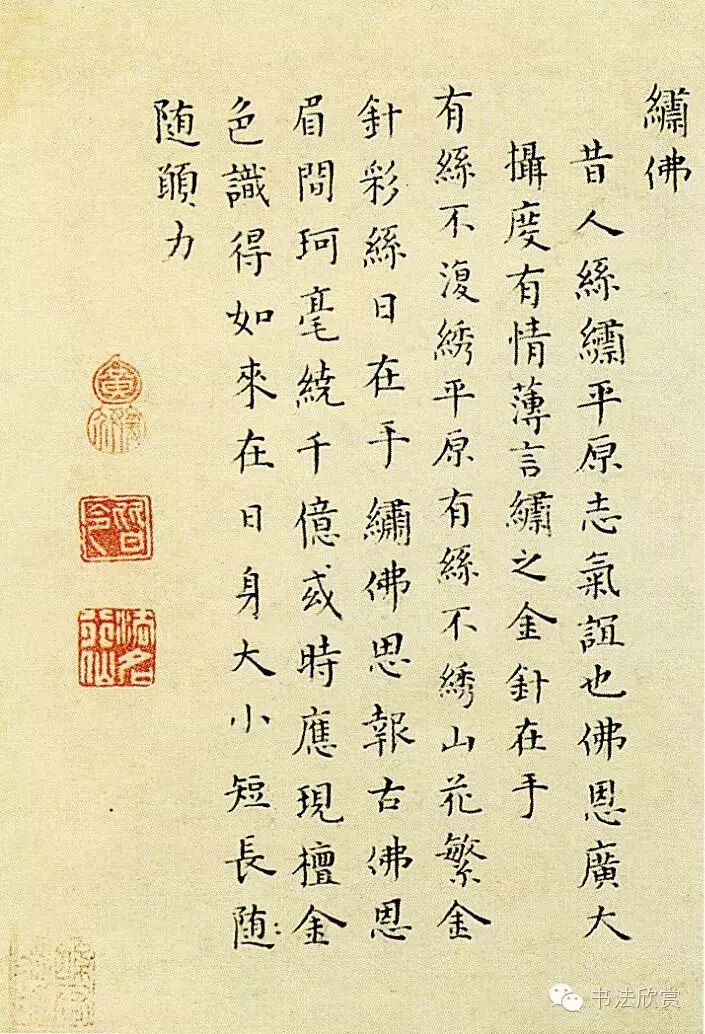 繡佛
昔人絲繡平原志氣誼也佛恩廣大
攝度有情薄言繡之金針在手
有絲不復綉平原有絲不綉山花繁金
針彩絲日在手繡佛思報古佛恩
眉間珂毫繞千億或時應現檀金
色識得如來在日身大小短長随:
随願力
书法欣赏